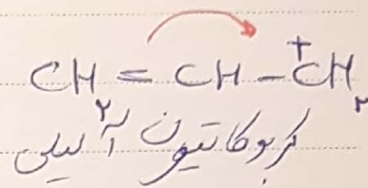 CH₂ = CH – C⁺H₂
کربوکاتیون آلیلی